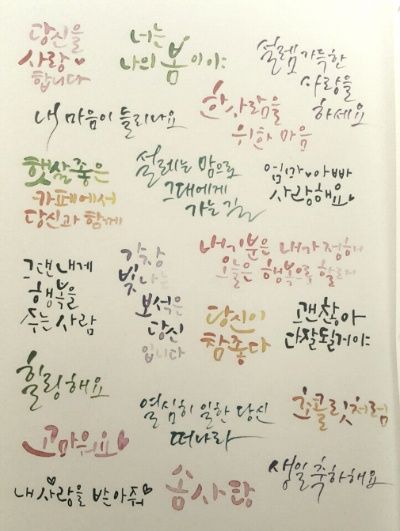 당신을
사랑
합니다
너는
나의 봄이야
설렘 가득한
사랑을
하세요
내 마음이 들리나요
한사람을
위한 마음
햇살좋은
카페에서
당신과 함께
설레는 맘으로
그대에게
가는 길
엄마 아빠
사랑해요
그댄 내게
행복을
주는 사람
가장
빛나는
보석은
당신
입니다
내 기분은 내가 정해
오늘은 행복으로 할래
당신이
참좋다
괜찮아
다잘될거야
힐링해요
고마워요
열심히 일한 당신
떠나라
초콜릿처럼
내 사랑을 받아줘
솜사탕
생일 축하해요